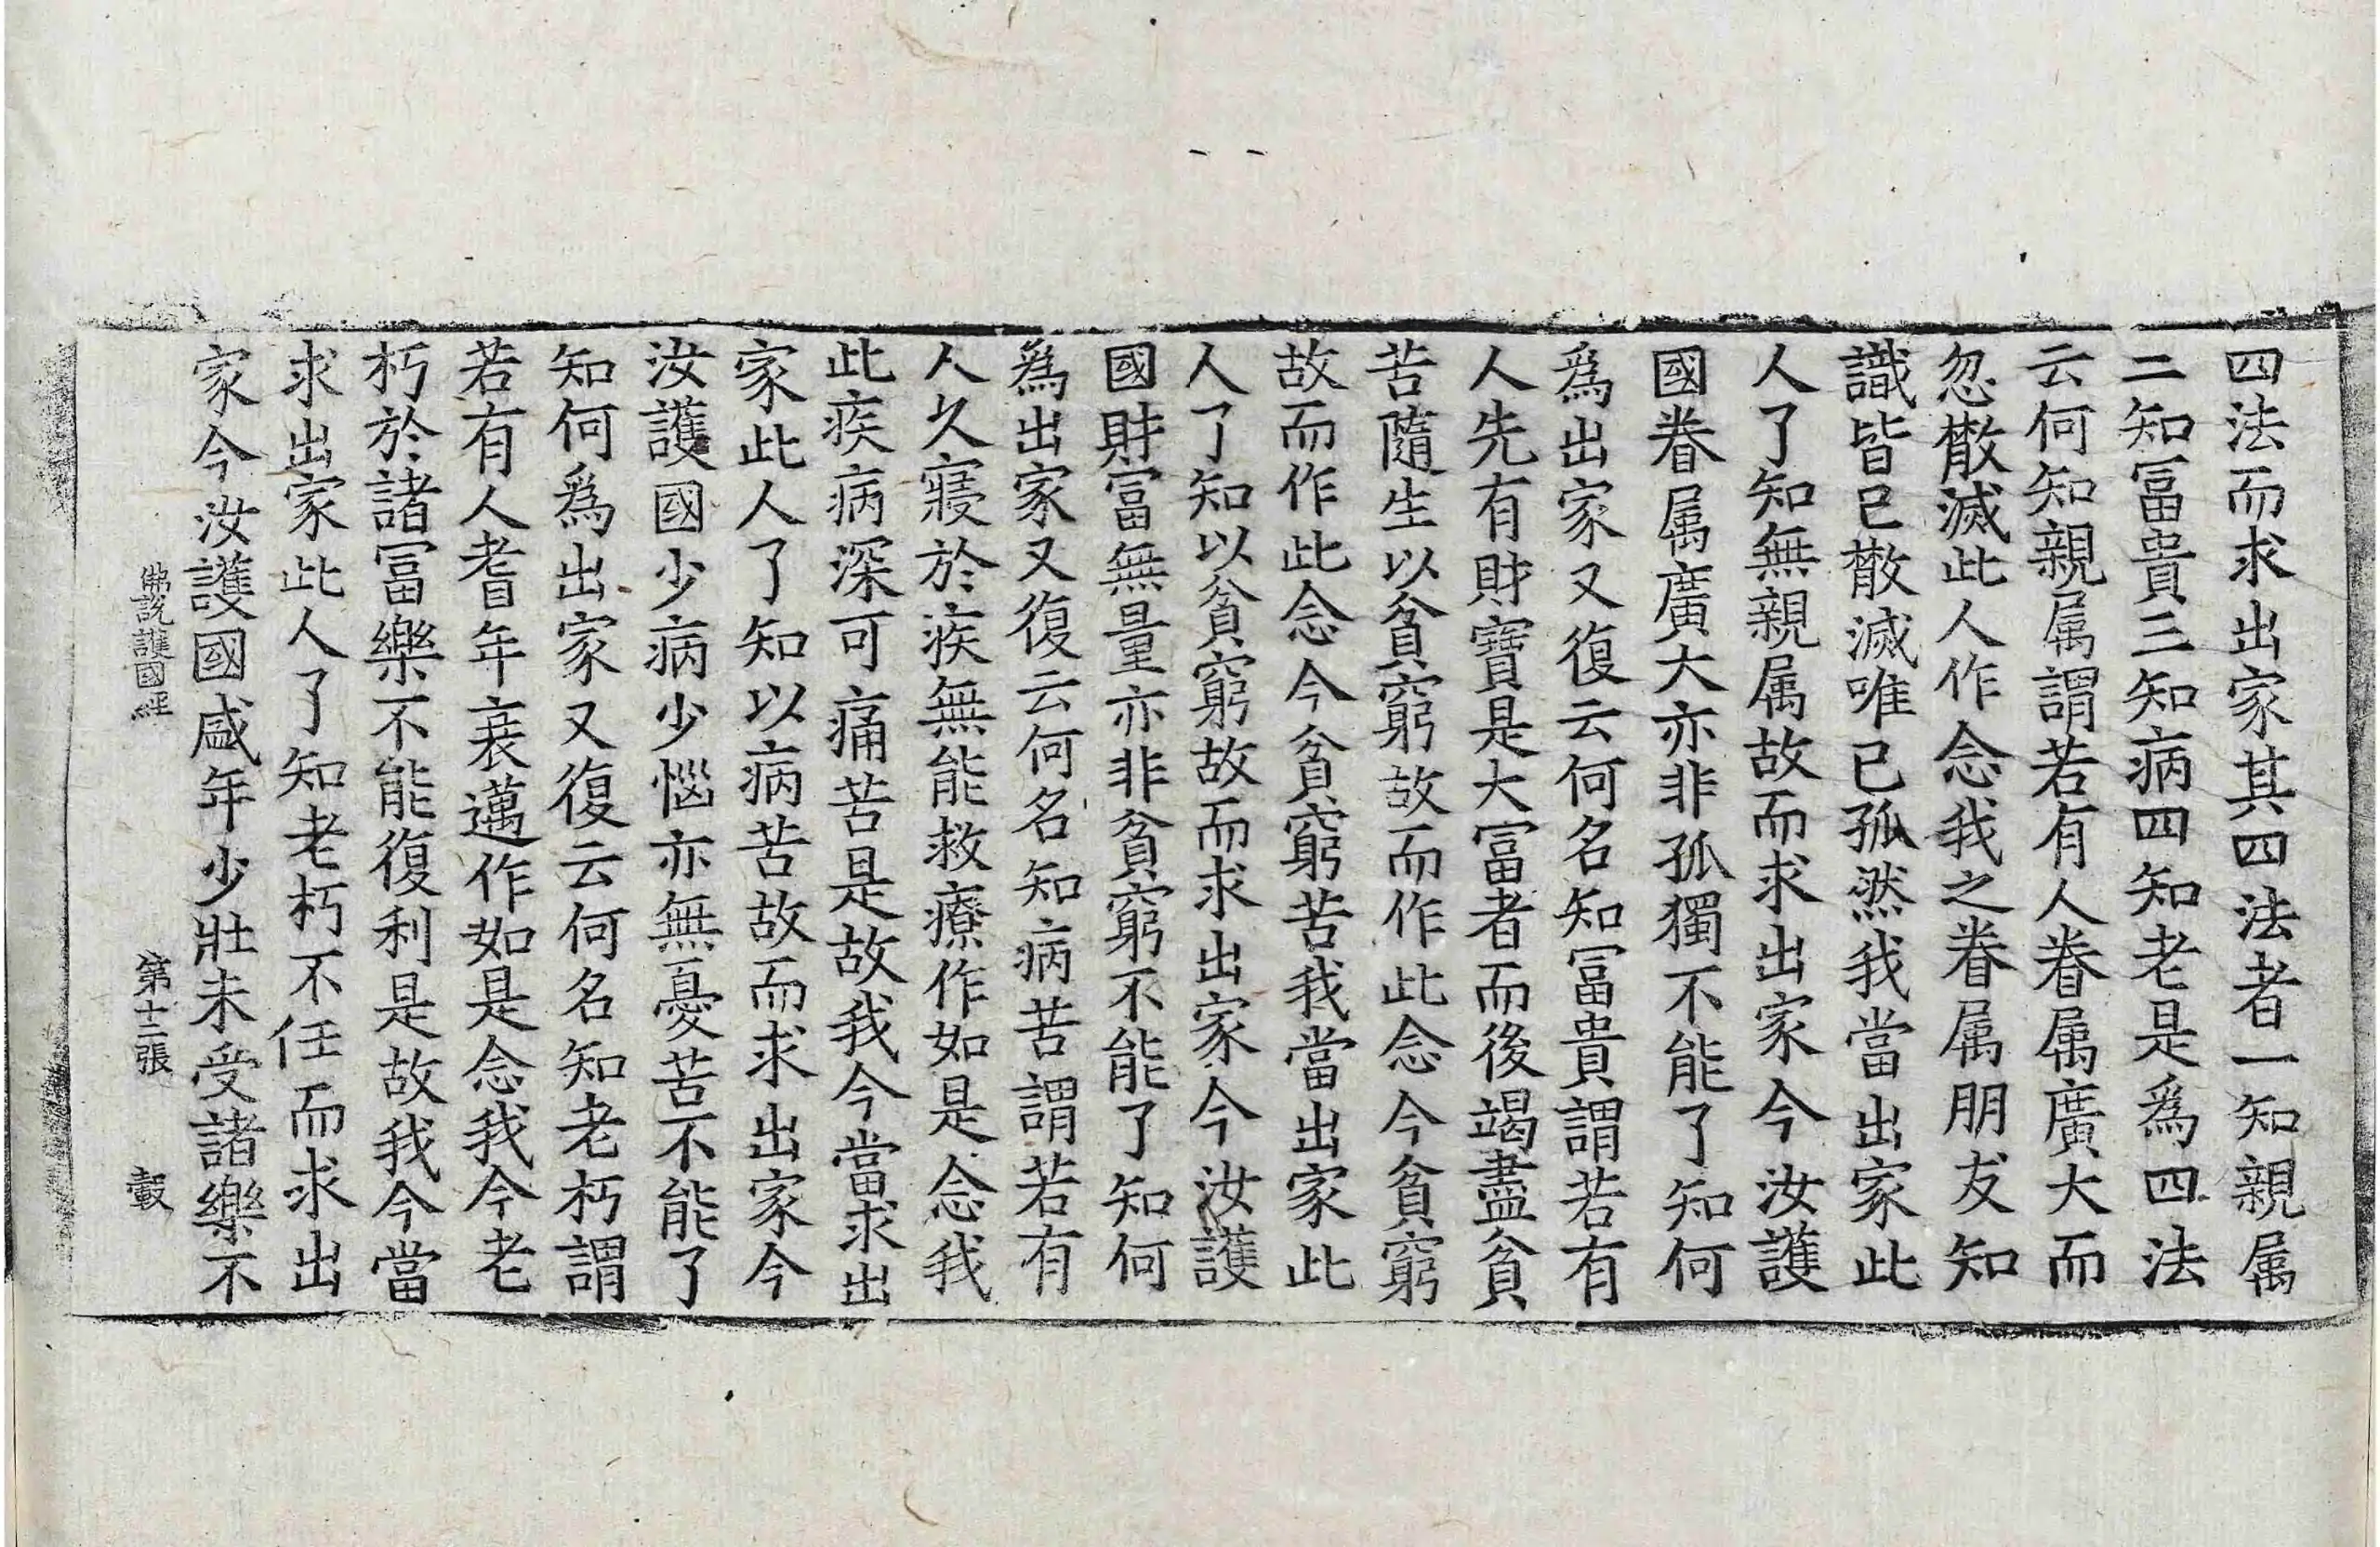 四法而求出家其四法者一知親属
二知冨貴三知病四知老是爲四法
云何知親属謂若有人眷属廣大而
忽散滅此人作念我之眷属朋友知
識皆已散滅唯已孤然我當出家此
人了知無親属故而求出家今汝護
國眷属廣大亦非孤獨不能了知何
爲出家又復云何名知冨貴謂若有
人先有財寶是大冨者而後竭盡貧
苦隨生以貧窮故而作此念今貧窮
故而作此念今貧窮苦我當出家此
人了知以貧窮故而求出家今汝護
國財冨無量亦非貧窮不能了知何
爲出家又復云何名知病苦謂若有
人久寢於疾無能救療作如是念我
此疾病深可痛苦是故我今當求出
家此人了知以病苦故而求出家今
汝護國少病少惱亦無憂苦不能了
知何爲出家又復云何名知老朽謂
若有人耆年衰邁作如是念我今老
朽於諸冨樂不能復利是故我今當
求出家此人了知老朽不任而求出
家今汝護國盛年少壯未受諸樂不
佛說護國經　第十二張　轂